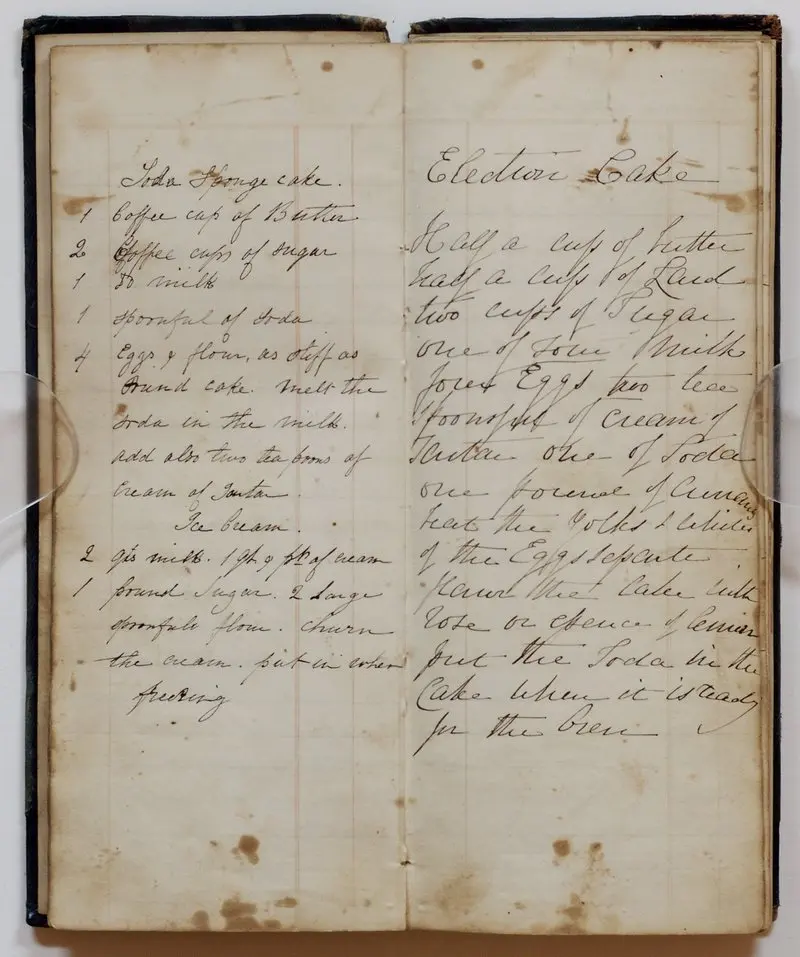 Soda Sponge cake.
1 Coffee cup of Butter
2 Coffee cups of sugar
1 do milk
1 spoonful of soda
4 Eggs & flour, as stiff as
Pound cake. melt the
soda in the milk.
add also two tea spoons of
Cream of Tartar.
Ice Cream.
2 qts milk. 1 qt & pt of cream
1 pound Sugar. 2 Large
spoonfuls flour. churn
the cream. put in when
freezing
Election Cake
Half a cup of butter
half a cup of Lard
two cups of Sugar
one of sour milk
four Eggs two tea
spoonsful of Cream of
Tartar one of Soda
one pound of Currans
beat the Yolks & Whites
of the Eggs separte
flavor the Cake with
Rose or esence of lemon
put the Soda in the
Cake when it is ready
for the Oven